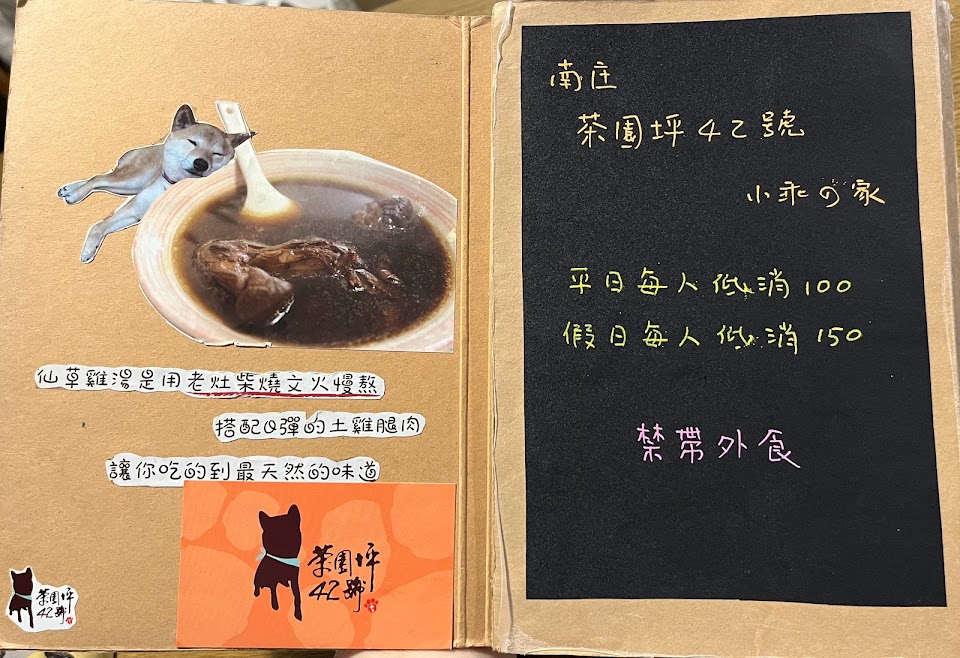 仙草雞湯是用老灶柴燒文火慢熬
搭配Q彈的土雞腿肉
讓你吃的到最天然的味道
茶園坪
42號
茶園坪
42號
南庄
茶園坪42號
小乖の家
平日每人低消100
假日每人低消150
禁帶外食